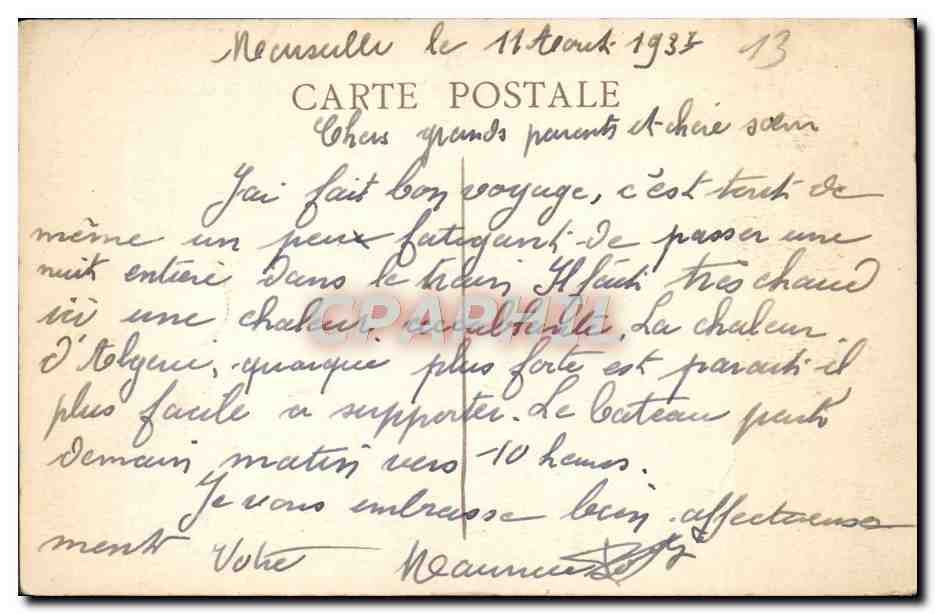 Marseille le 11 Aout 193 13
CARTE POSTALE
Chers grands parents et chère sœur
J'ai fait bon voyage, c'est tout de
même un peux fatigant de passer une
nuit entière dans le train Il fait très chaud
ici une chaleur accablante. La chaleur
d'Algerie, quoique plus forte est parait-il
plus facile a supporter. Le bateau part
demain matin vers 10 heures.
Je vous embrasse bien affectueuse
ment Votre Maurice
CPARAMA